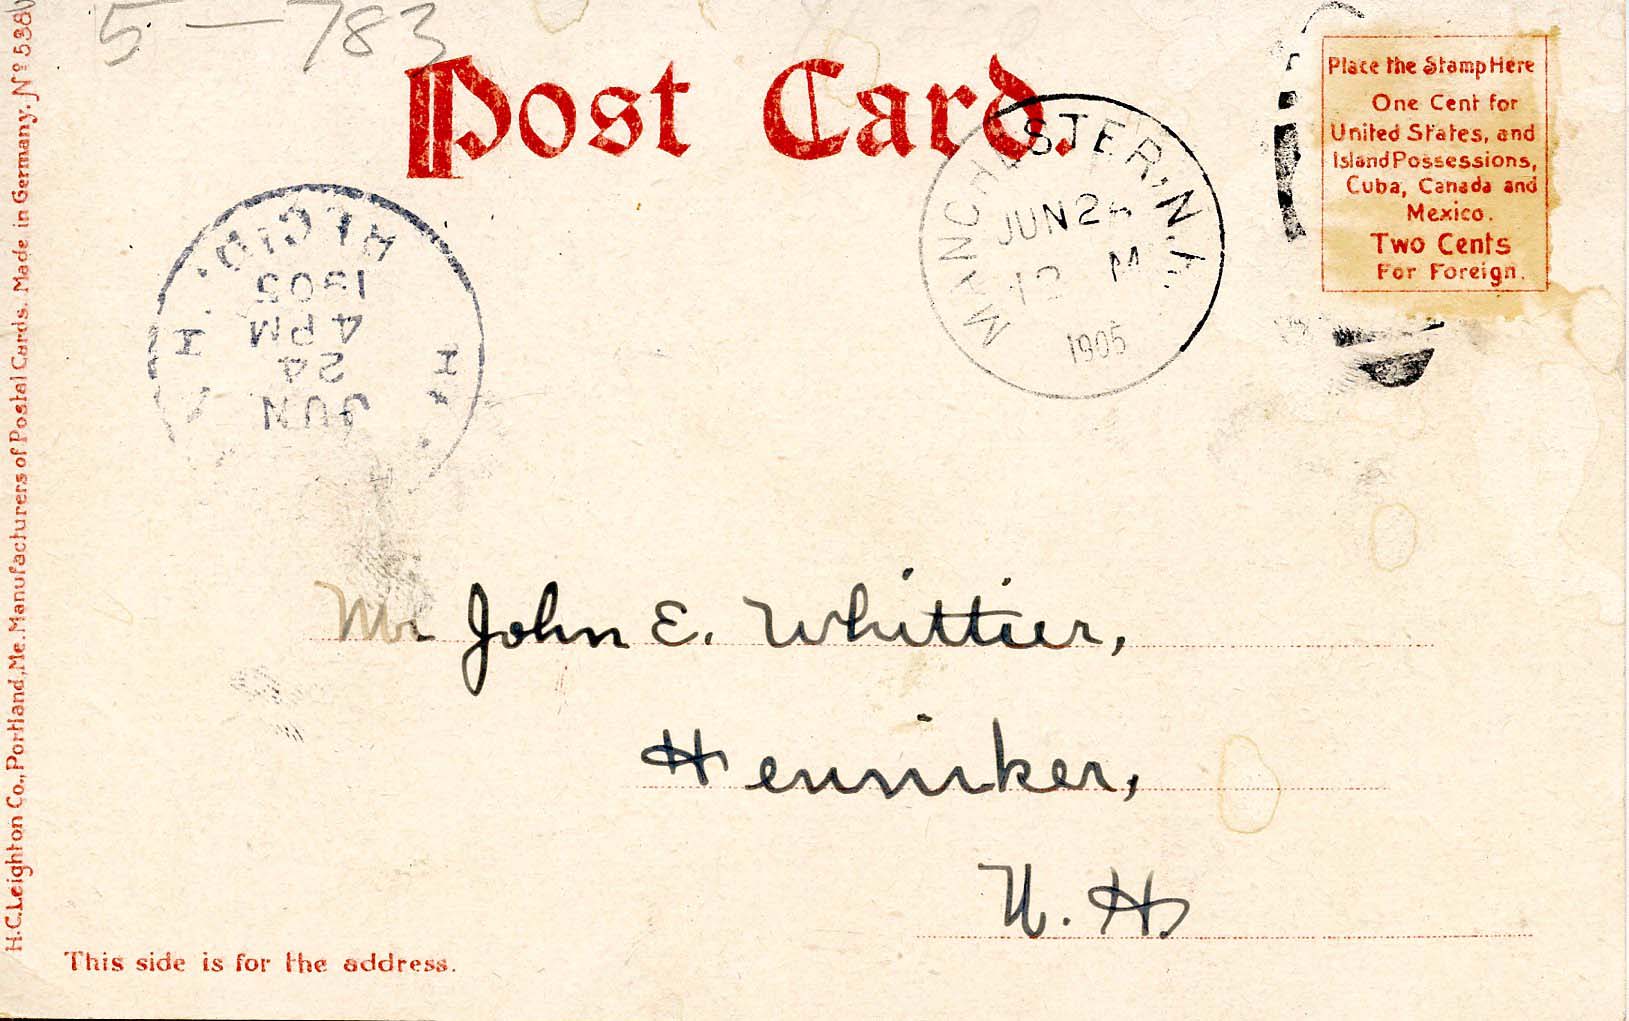 5-783
Post Card.
MANCHESTER, N.H.
JUN 24
M
1905
REC'D.
1905
4 PM
24
JUN
N. H.
Place the Stamp Here
One Cent for
United States, and
Island Possessions,
Cuba, Canada and
Mexico.
Two Cents
For Foreign.
Mr John E. Whittier,
Henniker,
N. H.
This side is for the address.
H.C. Leighton Co., Portland, Me. Manufacturers of Postal Cards. Made in Germany. No